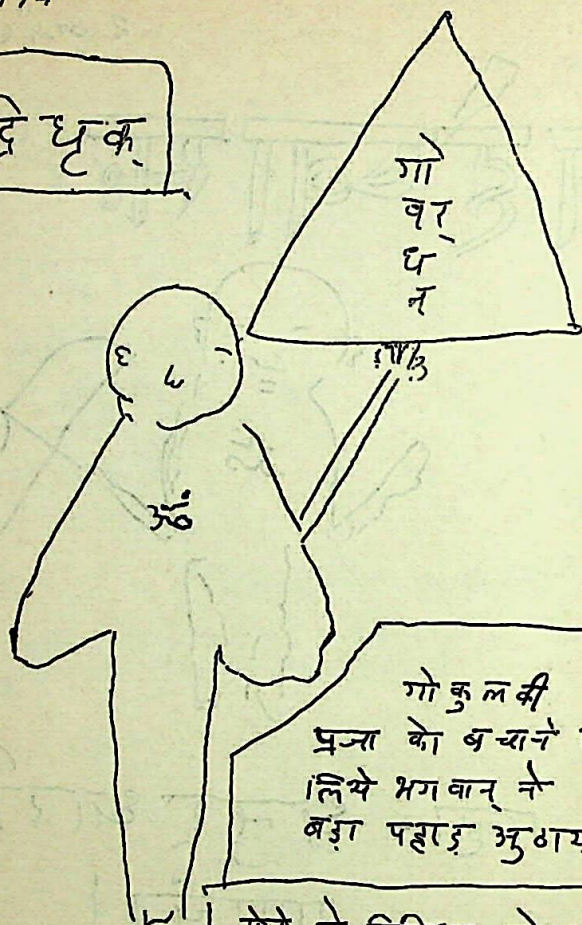 द्रे धृक्
गो
वर्
ध
न्
ॐ
गोकुल की
प्रजा को बचाने
लिये भगवान् ने
बड़ा पहाड़ अुठाय